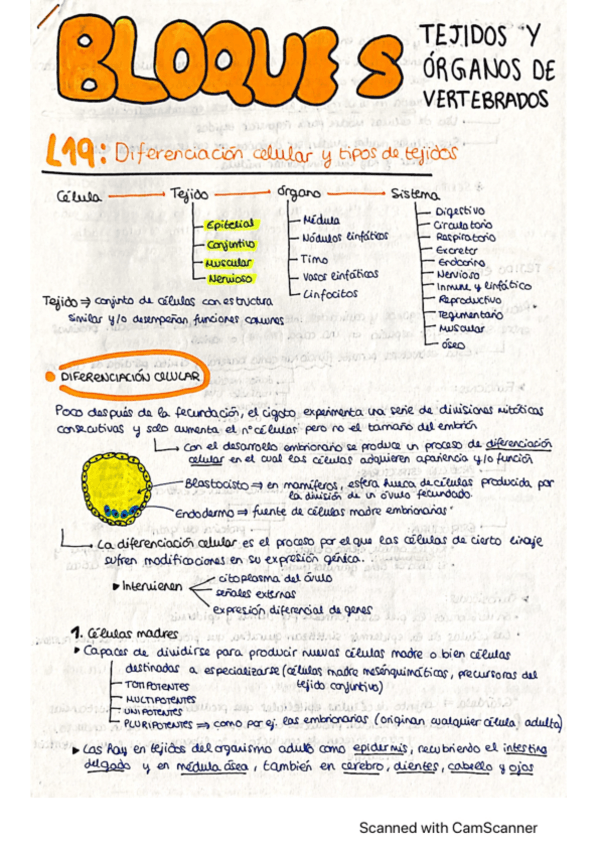 BLOQUE 5 TEJIDOS Y
ÓRGANOS DE
VERTEBRADOS
L19: Diferenciación celular y tipos de tejidos
Célula Tejido órgano Sistema
Epitelial
Conjuntivo
Muscular
Nervioso
Médula
Nódulos linfáticos
Timo
Vasos linfáticos
Linfocitos
Digestivo
Circulatorio
Respiratorio
Excretor
Endocrino
Nervioso
Inmune y linfático
Reproductivo
Tegumentario
Muscular
óseo
Tejido ⇒ conjunto de células con estructura
similar y/o desempeñan funciones comunes
DIFERENCIACIÓN CELULAR
Poco después de la fecundación, el cigoto experimenta una serie de divisiones mitóticas
consecutivas y solo aumenta el nº células pero no el tamaño del embrión
Con el desarrollo embrionario se produce un proceso de diferenciación
celular en el cual las células adquieren apariencia y/o función
Blastocisto ⇒ en mamíferos, esfera hueca de células producida por
la división de un óvulo fecundado.
Endodermo ⇒ fuente de células madre embrionarias
La diferenciación celular es el proceso por el que las células de cierto linaje
sufren modificaciones en su expresión génica.
▸ Intervienen
citoplasma del óvulo
señales externas
expresión diferencial de genes
1. Células madres
▸ Capaces de dividirse para producir nuevas células madre o bien células
destinadas a especializarse (células madre mesenquimáticas, precursoras del
tejido conjuntivo)
TOTIPOTENTES
MULTIPOTENTES
UNIPOTENTES
PLURIPOTENTES ⇒ como por ej. las embrionarias (originan cualquier célula adulta)
▸ Las hay en tejidos del organismo adulto como epidermis, recubriendo el intestino
delgado y en médula ósea, también en cerebro, dientes, cabello y ojos
Scanned with CamScanner